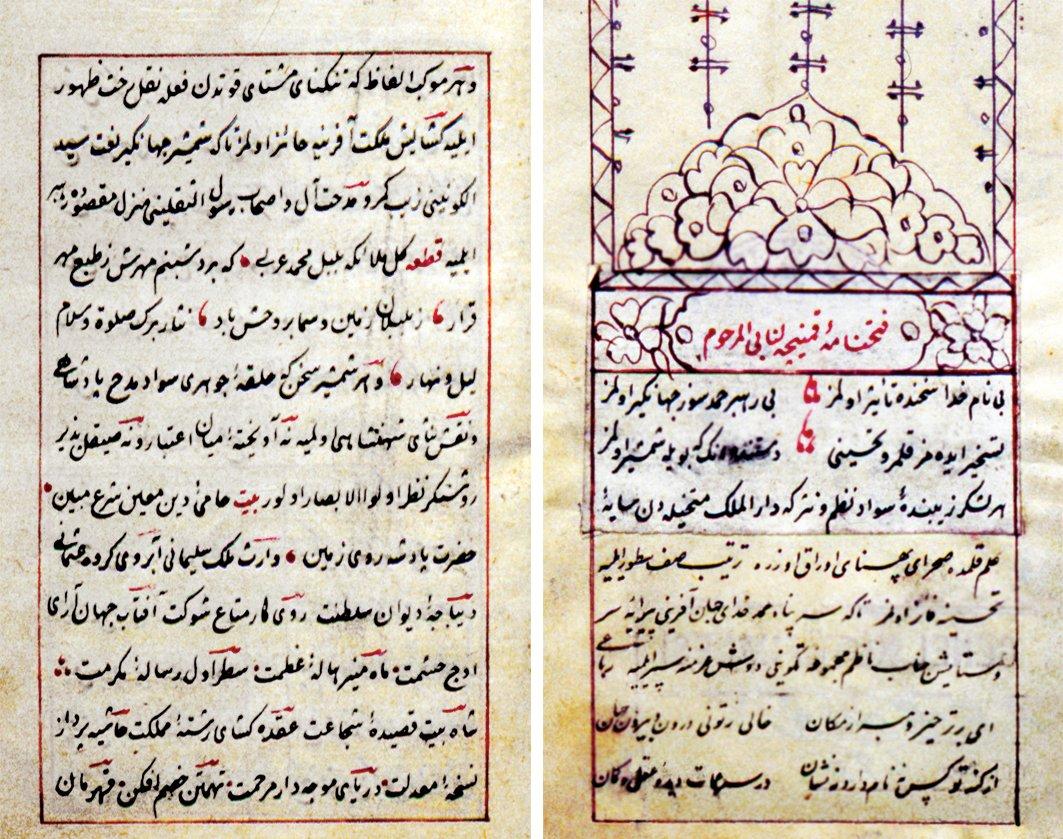 فتحنامهٔ قمنیچه لنابی المرحوم
بی نام خدا سخنده تاثیر اولمز بی رهبر حمد سوز جهانگیر اولمز
تسخیر ایده مز قلمرو تحسینی دستنده انک که بویله شمشیر اولمز
هر لشکر زیبندهٔ سواد نظم و نثر که دار الملک متخیله دن سایهٔ
علم قلمله صحرای پهنای اوراق اوزره ترتیب صف سطور ایلیه
تاکه سر پناه محمد خدای جهان آفرینی پیرایهٔ سر
و ستایش جناب ناظم مجموعهٔ تکوینی دوش عز
ای برتر خیز و مکان خالی ز تو نی درون و بیرون جهان
از کنه تو کس نام و نشان در
و هر موکب الفاظ که تنکنای مشتای قوتدن فعله نقل رخت ظهور
ایلیه کشایش ملکت آفرینه حائز اولمز تاکه شمشیر جهانگیر نعت سید
الکونینی زیب کمر و مدحت آل و اصحاب رسول الثقلینی منزل مقصوده رهبر
ایلیه قطعه کل بلبل محمد عربی که بر دشبنم مهرش ز طبع مهر
قرار ز بلبلان زمین و سما بروحش باد نثار برک صلوة و سلام
لیل و نهار و هر شمشیر سخن که حلقهٔ جوهری سواد مدح پادشاهی
و نقش ثنای شهنشاهی اولمیه نه آویختهٔ میان اعتبار و نه صیقل پذیر
روشنکر نظر اولوا الابصار اولور بیت حامیٔ دین معین شرع مبین
حضرت پادشه روی زمین وارث ملک سلیمانی آبروی کره عثمانی
دیباجهٔ دیوان سلطنت رونق کار متاع شوکت آفتاب جهان آرای
اوج حشمت ماه منیر هالهٔ عظمت سطر اول رسالهٔ مکرمت
شاه بیت قصیدهٔ شجاعت عقده کشای رشتهٔ مملکت حاشیه پرداز
نسخهٔ معدلت دریای موجه دار مرحمت تهمتن خصم افکن قهرمان